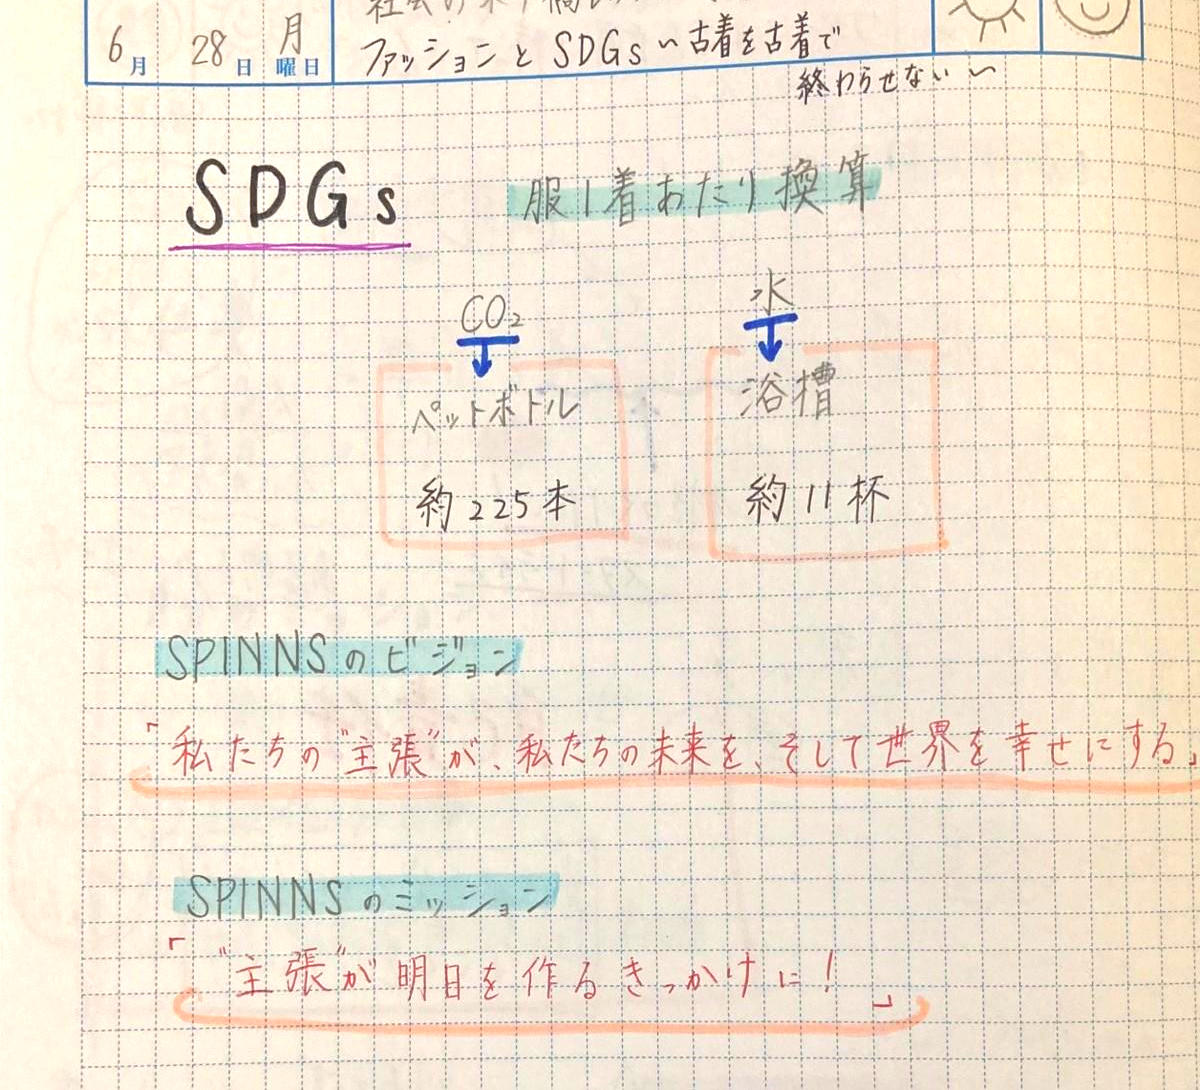 6月 28日 月曜日
ファッションと SDGs ～古着を古着で
終わらせない～
SDGs
服1着あたり換算
CO₂ 水
ペットボトル 浴槽
約225本 約11杯
SPINNSのビジョン
「私たちの"主張"が、私たちの未来を、そして世界を幸せにする」
SPINNSのミッション
「"主張"が明日を作るきっかけに！」